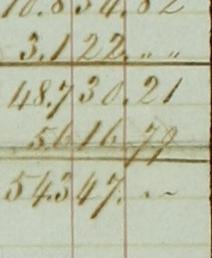 10.834.82
3.122.„ „
48.730.21
5616.79
54347.--